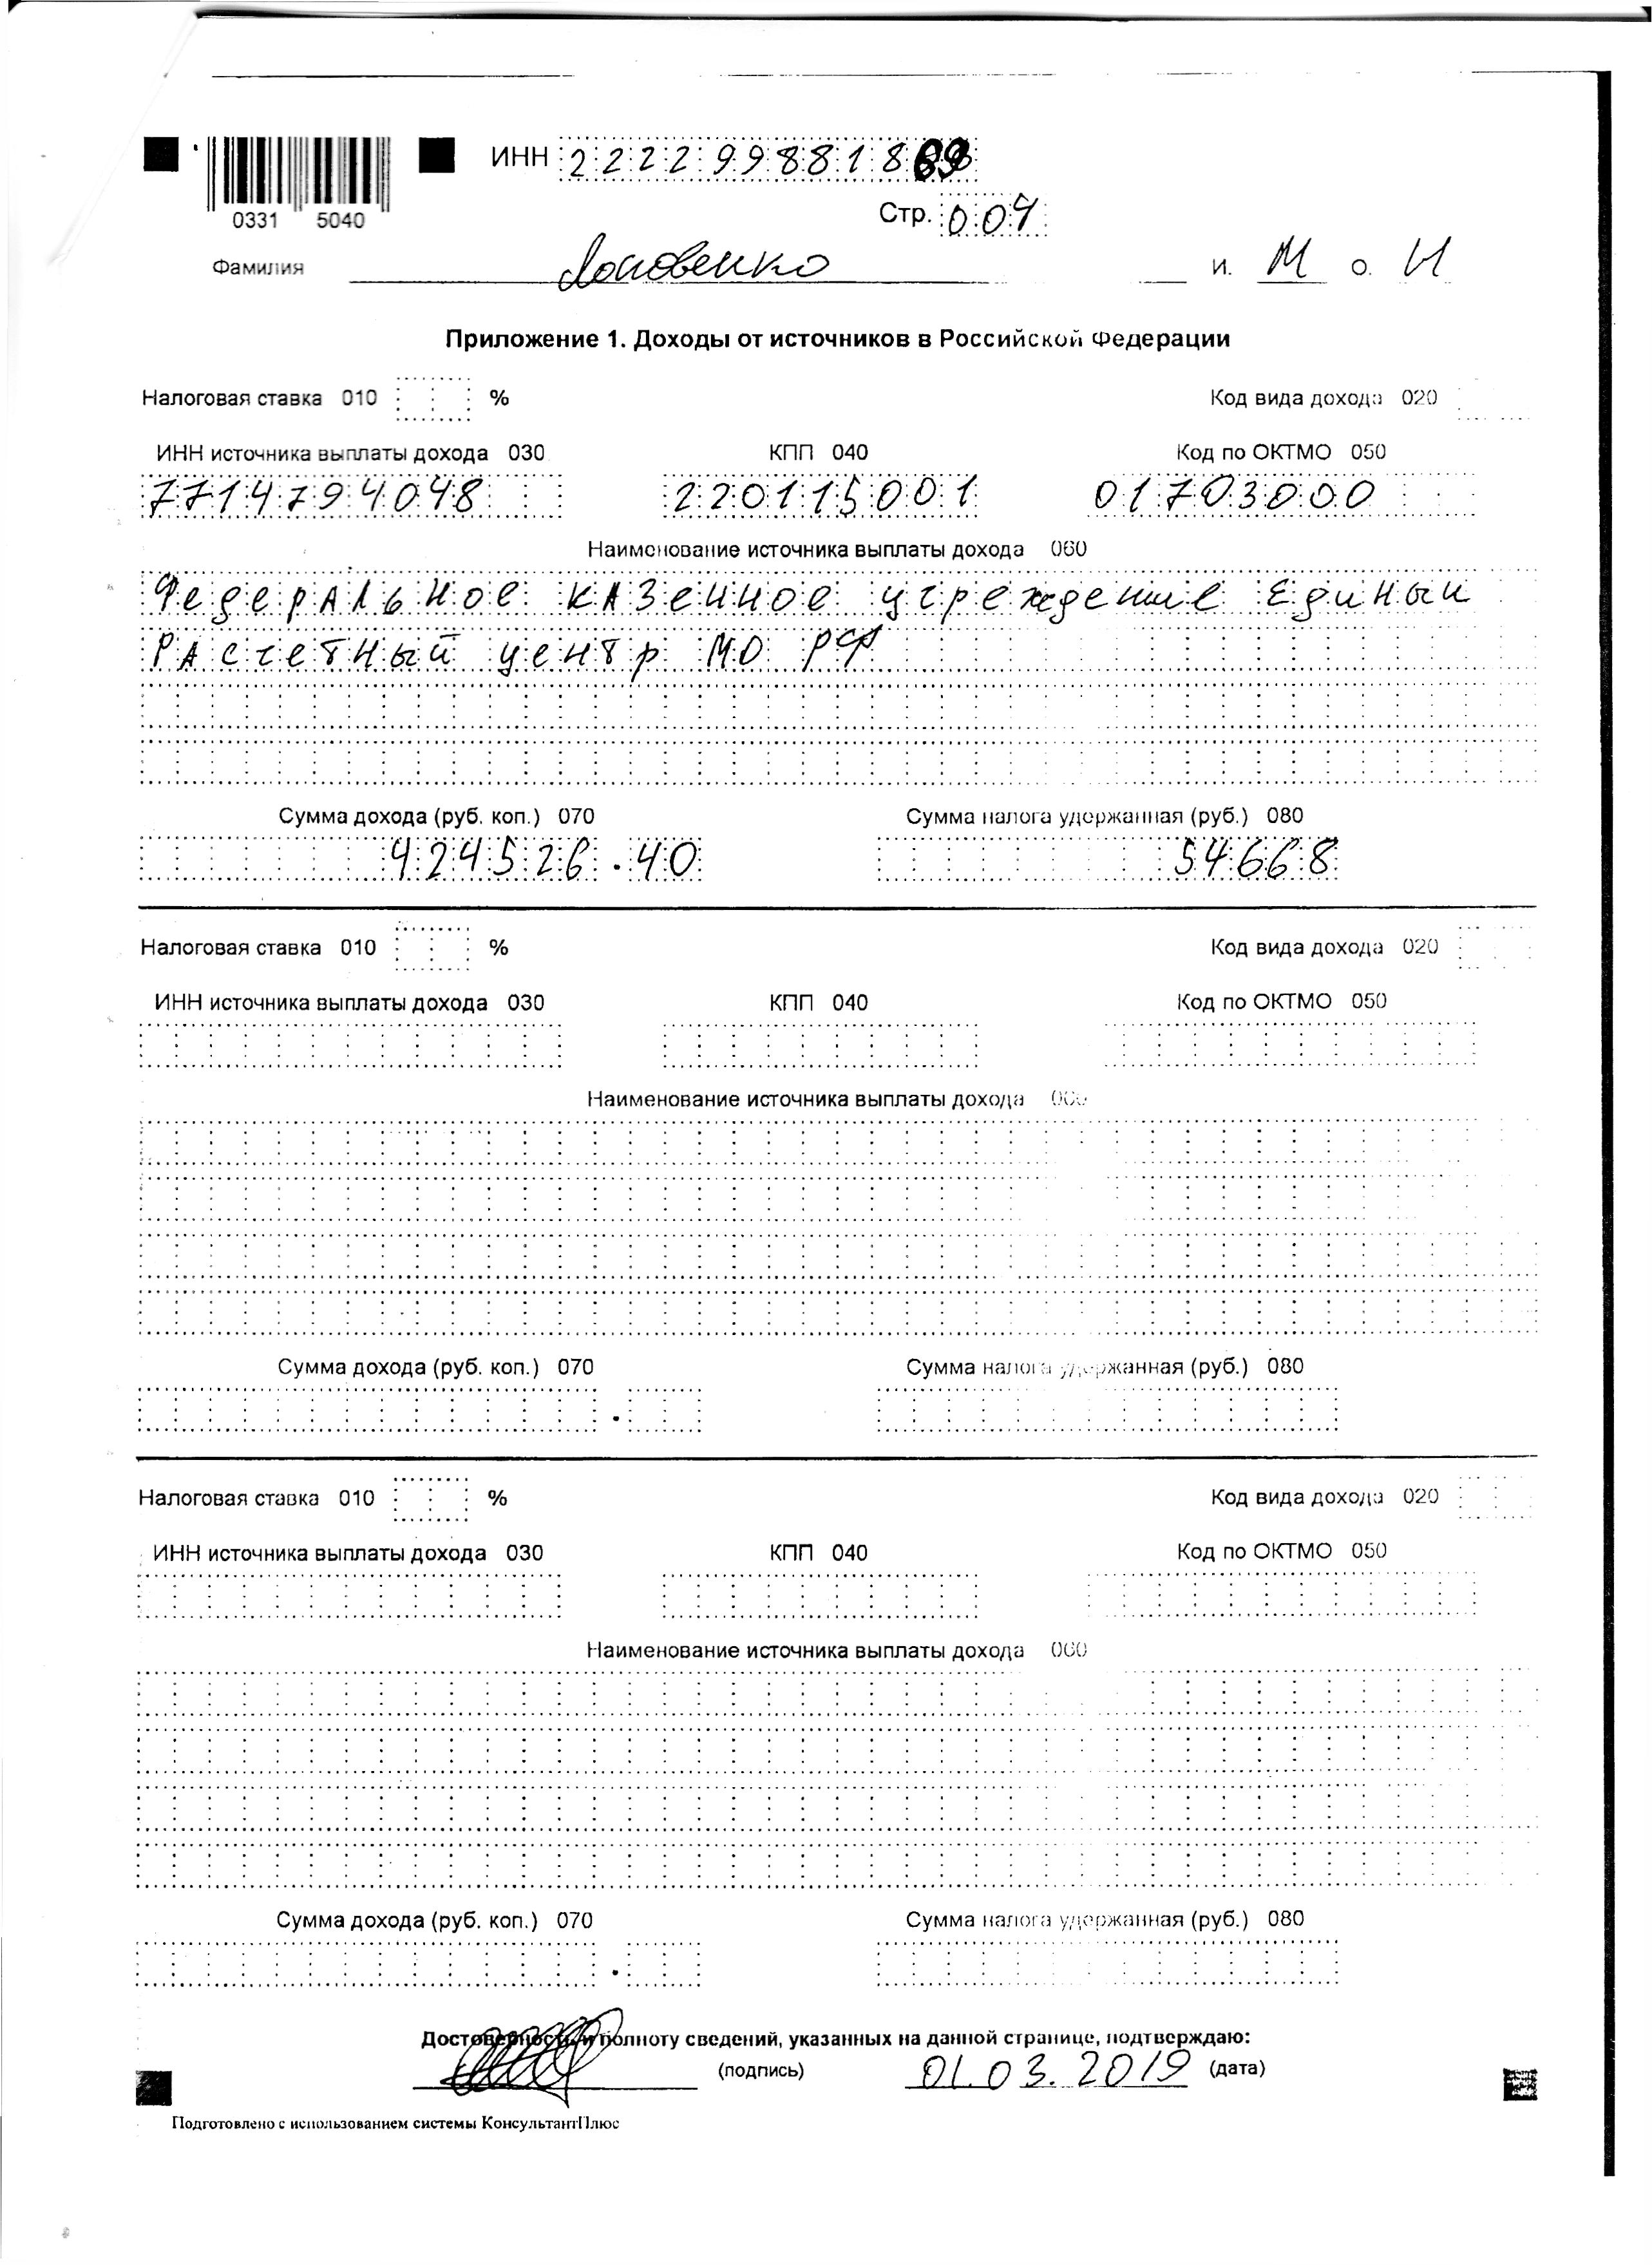 ИНН 2222998818
0331 5040
Стр. 004
Фамилия и. М о. И
Приложение 1. Доходы от источников в Российской Федерации
Налоговая ставка 010 % Код вида дохода 020
ИНН источника выплаты дохода 030 КПП 040 Код по ОКТМО 050
7714794048 220115001 01703000
Наименование источника выплаты дохода 060
Федеральное казенное учреждение Единый
Расчетный центр МО РФ
Сумма дохода (руб. коп.) 070 Сумма налога удержанная (руб.) 080
424526.40 54668
Налоговая ставка 010 % Код вида дохода 020
ИНН источника выплаты дохода 030 КПП 040 Код по ОКТМО 050
Наименование источника выплаты дохода 060
Сумма дохода (руб. коп.) 070 Сумма налога удержанная (руб.) 080
Налоговая ставка 010 % Код вида дохода 020
ИНН источника выплаты дохода 030 КПП 040 Код по ОКТМО 050
Наименование источника выплаты дохода 060
Сумма дохода (руб. коп.) 070 Сумма налога удержанная (руб.) 080
Достоверность и полноту сведений, указанных на данной странице, подтверждаю:
(подпись) 01.03.2019 (дата)
Подготовлено с использованием системы КонсультантПлюс